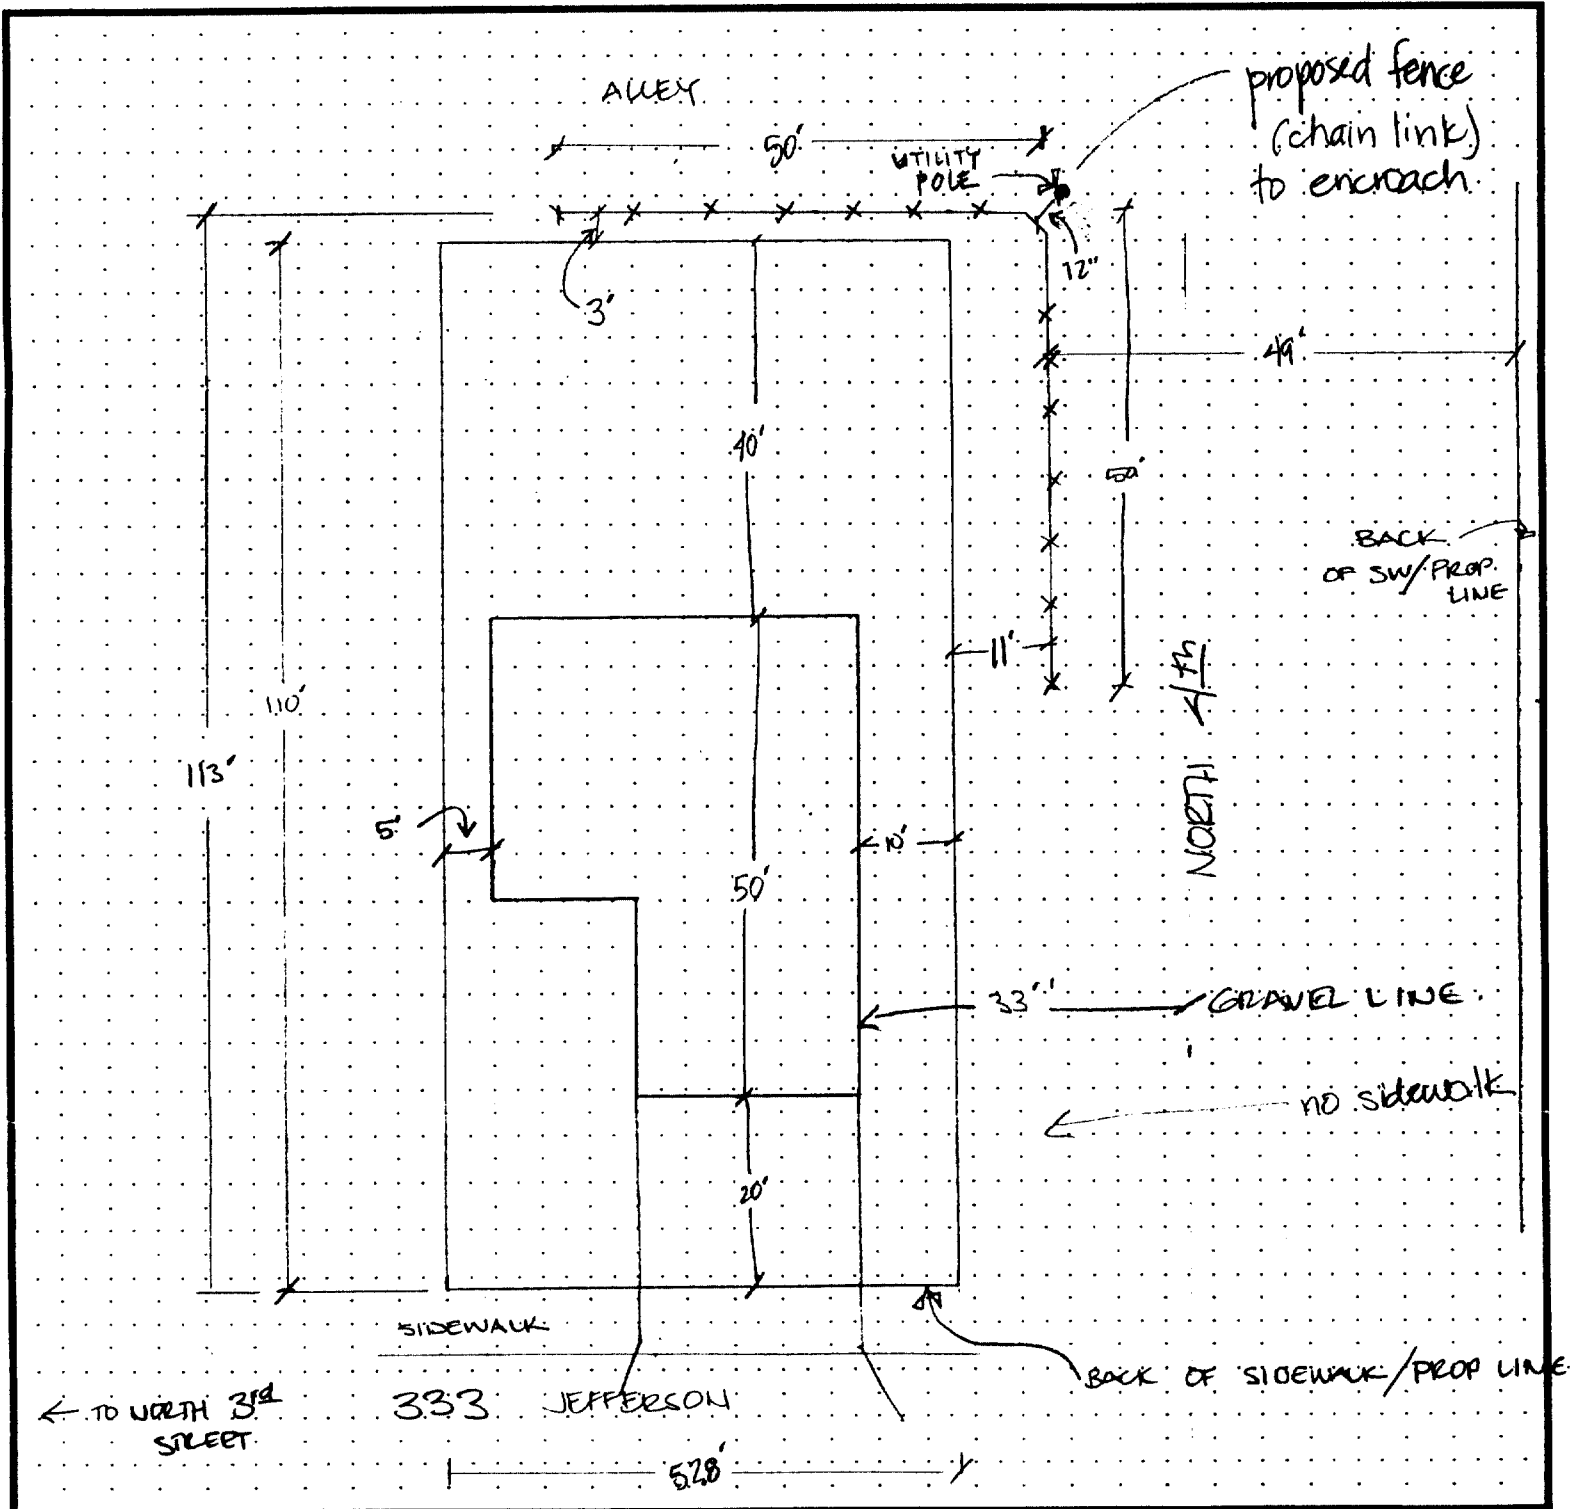 ALLEY
proposed fence
(chain link)
to encroach
50'
UTILITY
POLE
12"
3'
49'
40'
50'
BACK
OF SW/PROP.
LINE
11'
NORTH 4th
110'
113'
5'
10'
50'
33'
GRAVEL LINE
no sidewalk
20'
SIDEWALK
BACK OF SIDEWALK/PROP LINE
← TO NORTH 3rd
STREET
333 JEFFERSON
52.8'